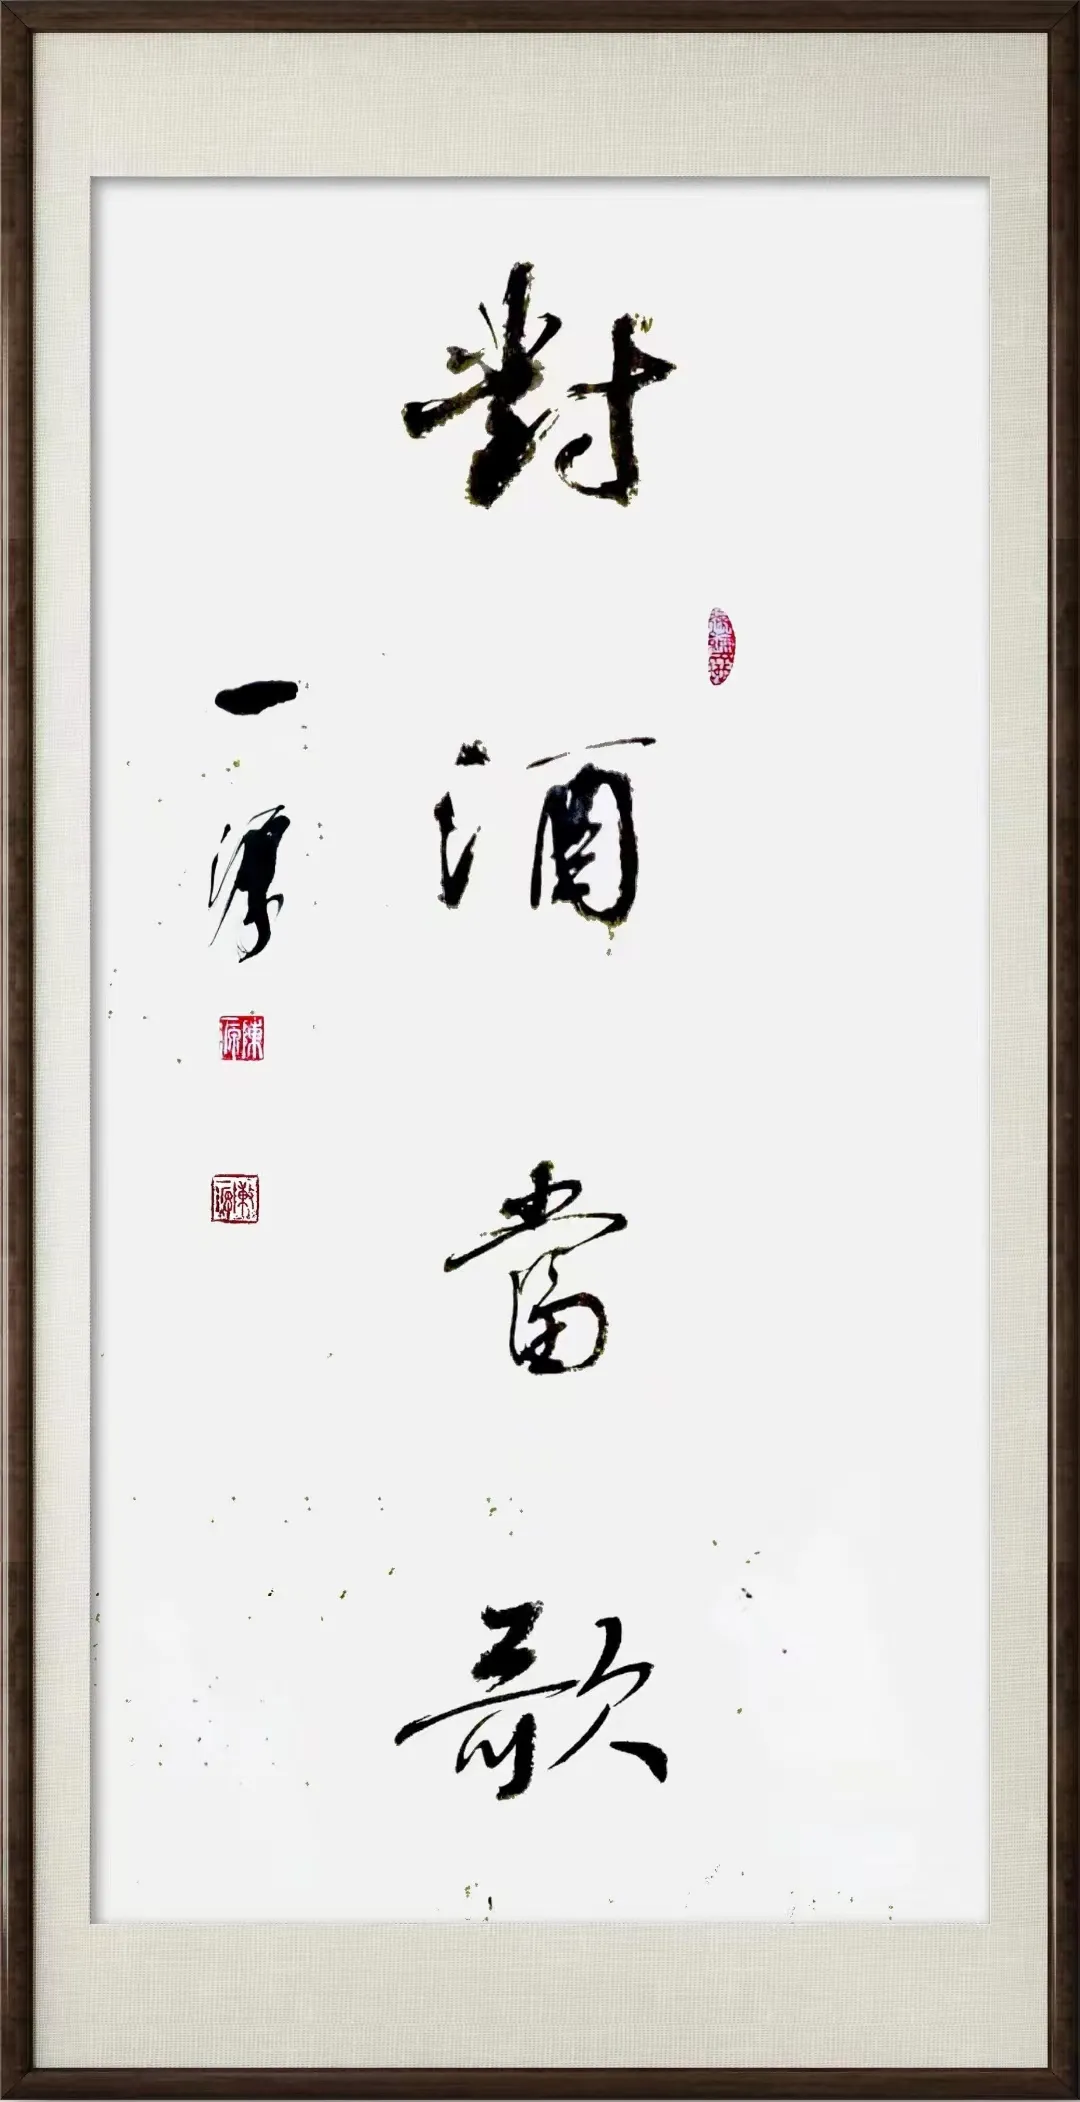 對酒當歌
一源
陳源
陳源